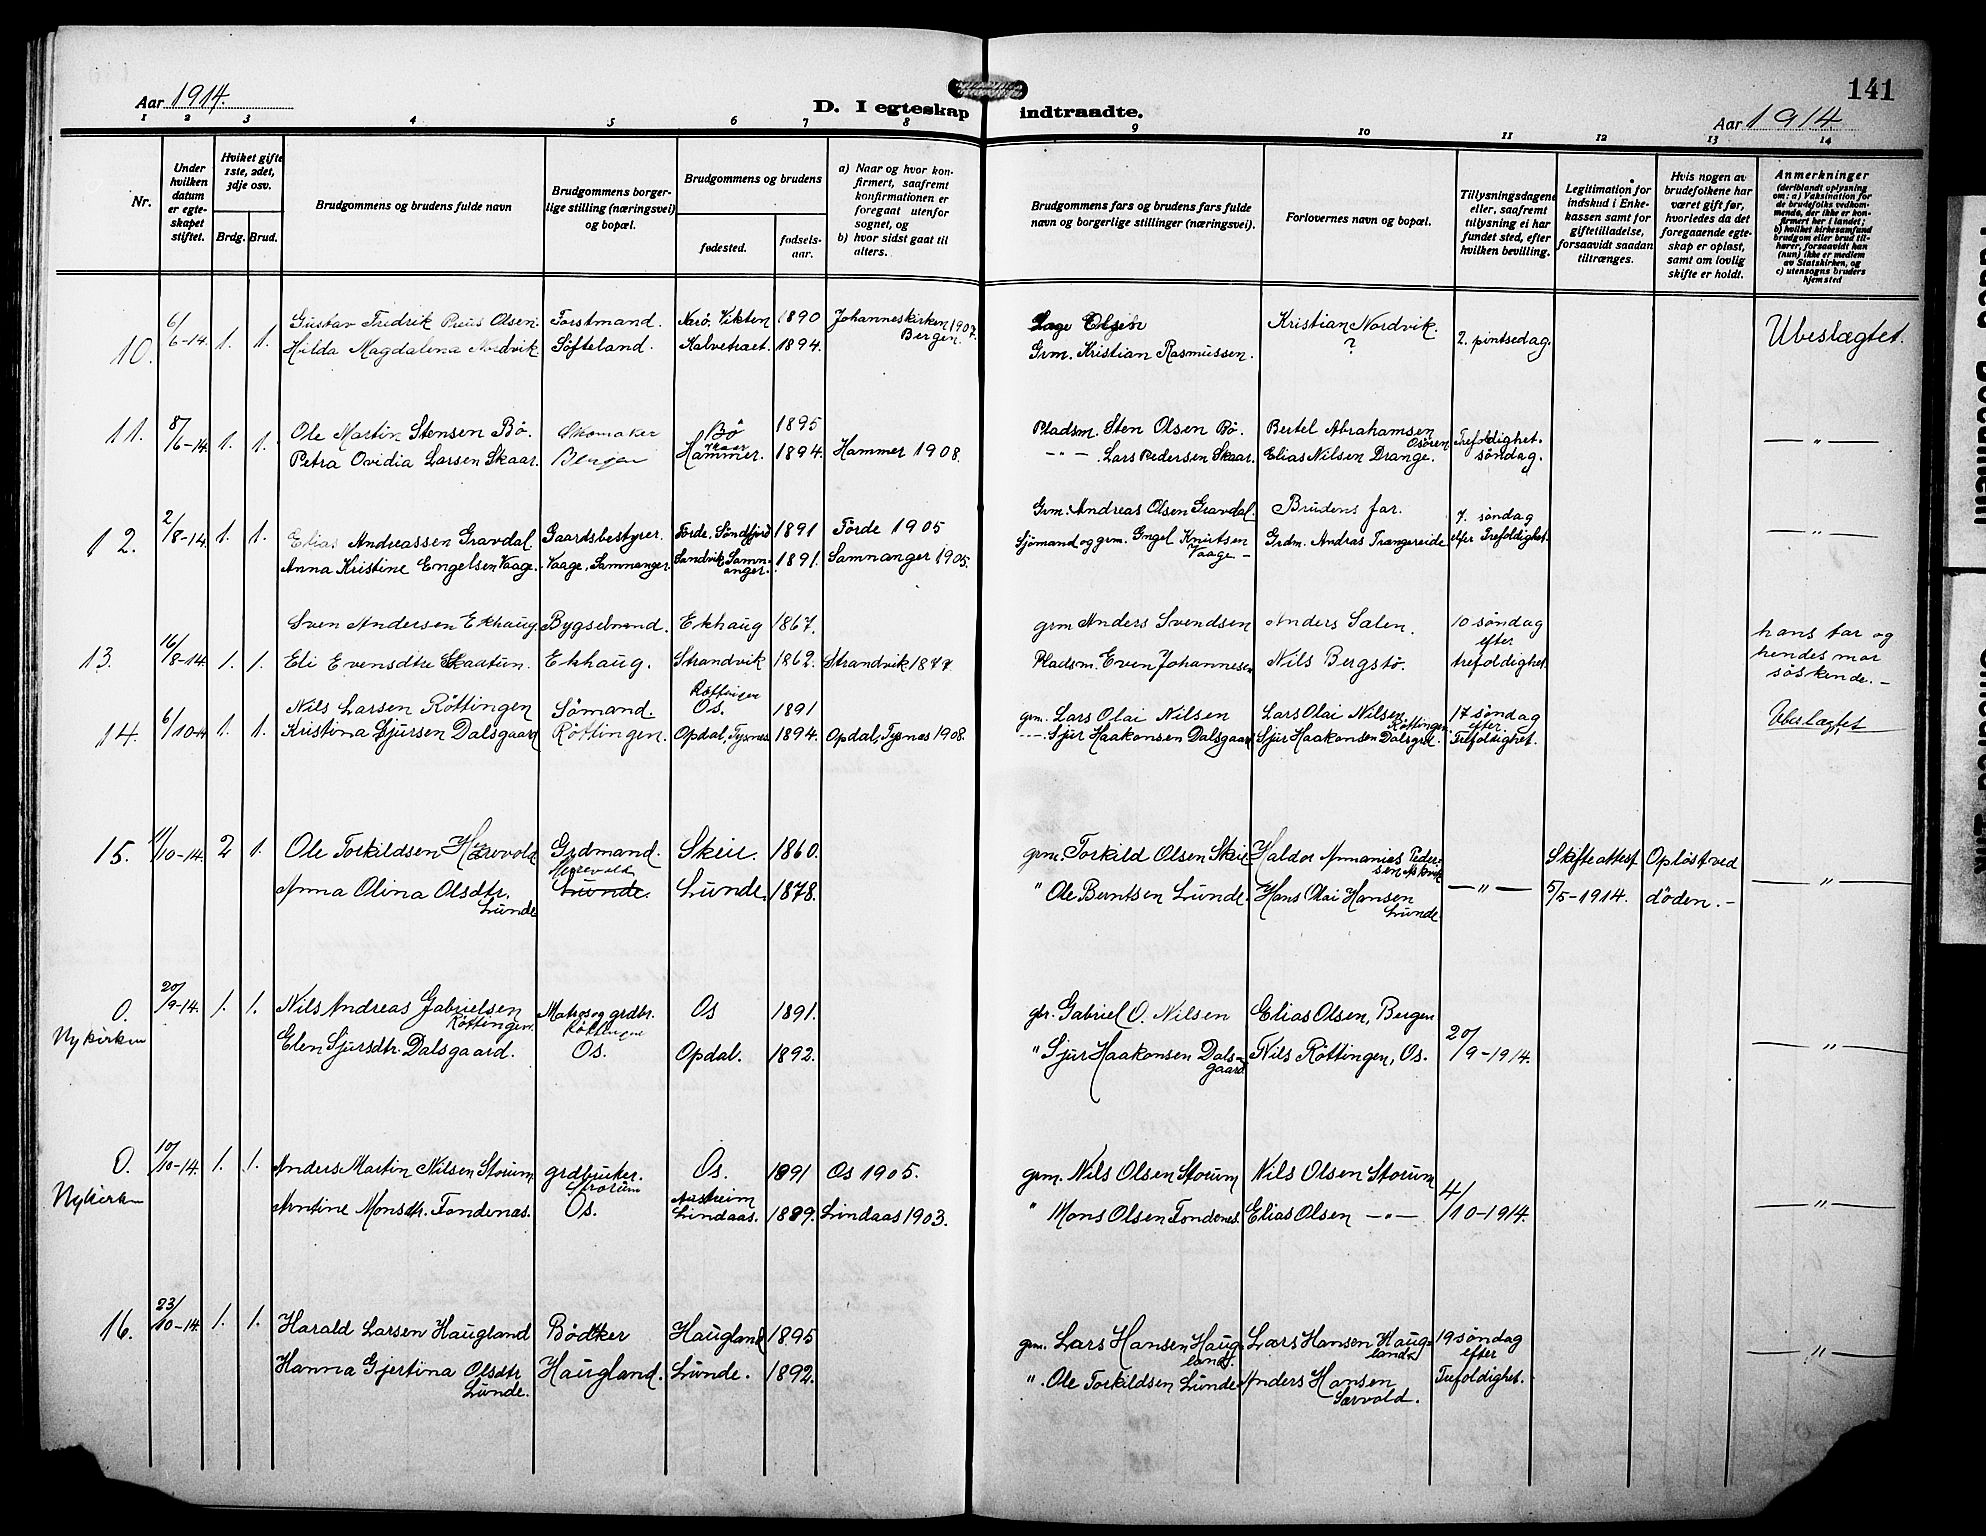 Aar 1914.
D. I egteskap indtraadte.
Aar 1914
141
1 2 3 4 5 6 7 8 9 10 11 12 13 14
Nr.
Under hvilken datum er egteskapet stiftet.
Hviket gifte 1ste, 2det, 3dje osv.
Brdg. Brud.
Brudgommens og brudens fulde navn
Brudgommens borgerlige stilling (næringsvei) og bopæl.
Brudgommens og brudens
fødested.
fødselsaar.
a) Naar og hvor konfirmert, saafremt konfirmationen er foregaat utenfor sognet, og
b) hvor sidst gaat til alters.
Brudgommens fars og brudens fars fulde navn og borgerlige stillinger (næringsvei).
Forlovernes navn og bopæl.
Tillysningsdagene eller, saafremt tillysning ei har fundet sted, efter hvilken bevilling.
Legitimation for indskud i Enkekassen samt for giftetilladelse, forsaavidt saadan tiltrænges.
Hvis nogen av brudefolkene har været gift før, hvorledes da det foregaaende egteskap er opløst, samt om lovlig skifte er holdt.
Anmerkninger
(deriblandt oplysning om: a) Vaksination for de brudefolks vedkommende, der ikke er konfirmert her i landet; b) hvilket kirkesamfund brudgom eller brud tilhører, forsaavidt han (hun) ikke er medlem av Statskirken, og c) utensogns bruders hjemsted
10. 6/6-14. 1. 1. Gustav Fredrik Preus Olsen. Forstmand. Nærø, Vikten 1890 Johanneskirken 1907. Bergen. Lage Olsen Kristian Nordvik. 2. pintsedag Ubeslægtet.
Hilda Magdalena Nordvik Søfteland. Kalvetræet. 1894. Grm. Kristian Rasmussen. ?
11. 8/6-14 1. 1. Ole Martin Stensen Bø. Skomaker Bø 1895 Pladsm. Sten Olsen Bø. Bertel Abrahamsen Osøren Trefoldighet. — " —
Petra Ovidia Larsen Skaar. Bergen Skaar Hammer. 1894. Hammer 1908. — " — . Lars Pedersen Skaar. Elias Nilsen Drange. søndag.
12. 2/8-14. 1. 1. Elias Andreassen Gravdal. Gaardsbestyrer. Førde, Søndfjord 1891 Førde 1905 Grm. Andreas Olsen Gravdal. Brudens far. 7. søndag — " —
Anna Kristine Engelsen Vaage. Vaage, Samnanger. Sandvik, Samnanger. 1891. Samnanger 1905. Sjømand og grm. Engel Knutsen Vaage — Grdm. Andras Trangereide efter Trefoldighet.
13. 16/8-14 1. 1. Sven Andersen Ekhaug. Bygselmand. Ekhaug 1867. grm Anders Svendsen Anders Salen. 10 søndag efter hans far og
Eli Evensdtr Skaatun. Ekhaug. Strandvik 1862. Strandvik 1877 Pladsm. Even Johannesen Nils Bergstø. trefoldighet hendes mor søskende. —
14. 6/10-14 1. 1. Nils Larsen Røttingen Sømand. Røttingen Os. 1891 grm. Lars Olai Nilsen Lars Olai Nilsen Røttingen 17 søndag efter Ubeslægtet
Kristina Sjursen Dalsgaard Røttingen. Opdal, Tysnes 1894. Opdal, Tysnes 1908. - - - Sjur Haakonsen Dalsgaard Sjur Haakonsen Dalsgrd. Trefoldighet.
15. 11/10-14. 2 1. Ole Torkildsen Hærevold Grdmand. Skeie. 1860. grm. Torkild Olsen Skeie Haldor Ammanies Pedersen Skifteattest Opløst ved
Anna Olina Olsdtr. Lunde Herevold Lunde. Lunde. 1878. " Ole Berntsen Lunde. Hans Olai Hansen Lunde — " — 5/5-1914. døden. — — " —
0. Nykirken 20/9-14. 1. 1. Nils Andreas Gabrielsen Røttingen Matros og grdbr. Røttingen Os 1891. gbr. Gabriel O. Nilsen Elias Olsen, Bergen 20/9-1914.
Elen Sjursdtr. Dalsgaard. Os. Opdal. 1892. " Sjur Haakonsen Dalsgaard Nils Røttingen, Os. — " —
0. Nykirken 10/10-14. 1. 1. Anders Martin Nilsen Storum grdbruker. Storum Os. 1891 Os 1905. grm. Nils Olsen Storum Nils Olsen Storum 4/10-1914.
Antine Monsdtr. Fondenes. Os. Aasheim Lindaas. 1889. Lindaas 1903. " Mons Olsen Fondenes. Elias Olsen — " — — " —
16. 23/10-14. 1. 1. Harald Larsen Haugland Bødker Haugland 1895 grm. Lars Hansen Haugland. Lars Hansen Haugland 19 søndag efter — " —
Hanna Gjertina Olsdtr Lunde. Haugland. Lunde. 1892. " . Ole Torkildsen Lunde Anders Hansen Særvold. Trefoldighet.